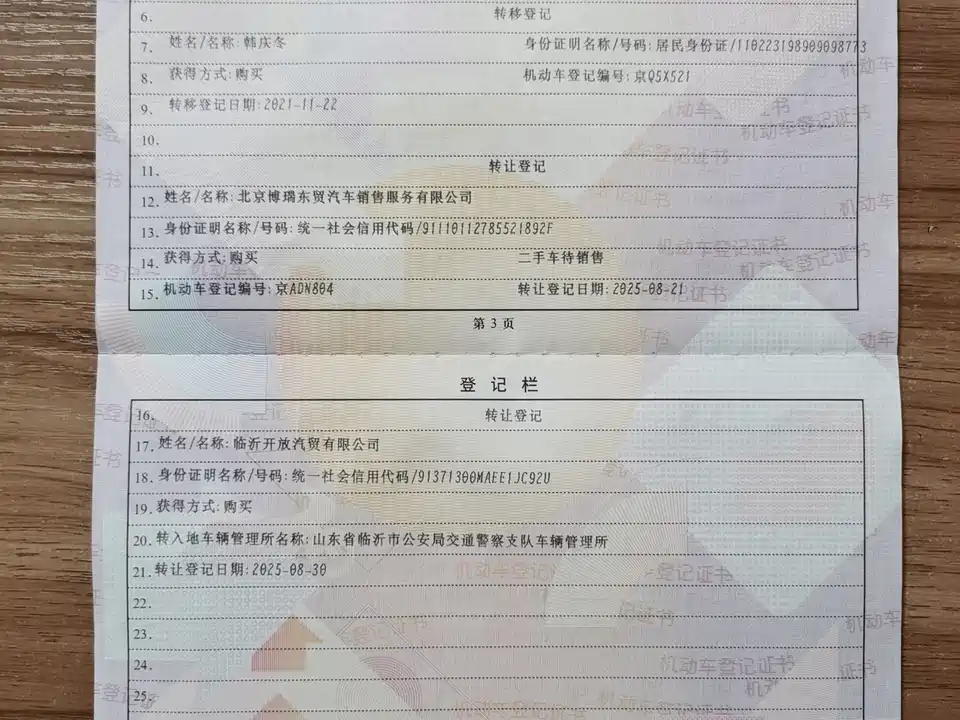 6. 转移登记
7. 姓名/名称: 韩庆冬 身份证明名称/号码: 居民身份证/110223198909098773
8. 获得方式: 购买 机动车登记编号: 京Q5X521
9. 转移登记日期: 2021-11-22
10.
11. 转让登记
12. 姓名/名称: 北京博瑞东贸汽车销售服务有限公司
13. 身份证明名称/号码: 统一社会信用代码/91110112785521892F
14. 获得方式: 购买 二手车待销售
15. 机动车登记编号: 京ADN804 转让登记日期: 2025-08-21
第 3 页
登 记 栏
16. 转让登记
17. 姓名/名称: 临沂开放汽贸有限公司
18. 身份证明名称/号码: 统一社会信用代码/91371300MAEE1JC92U
19. 获得方式: 购买
20. 转入地车辆管理所名称: 山东省临沂市公安局交通警察支队车辆管理所
21. 转让登记日期: 2025-08-30
22.
23.
24.
25.